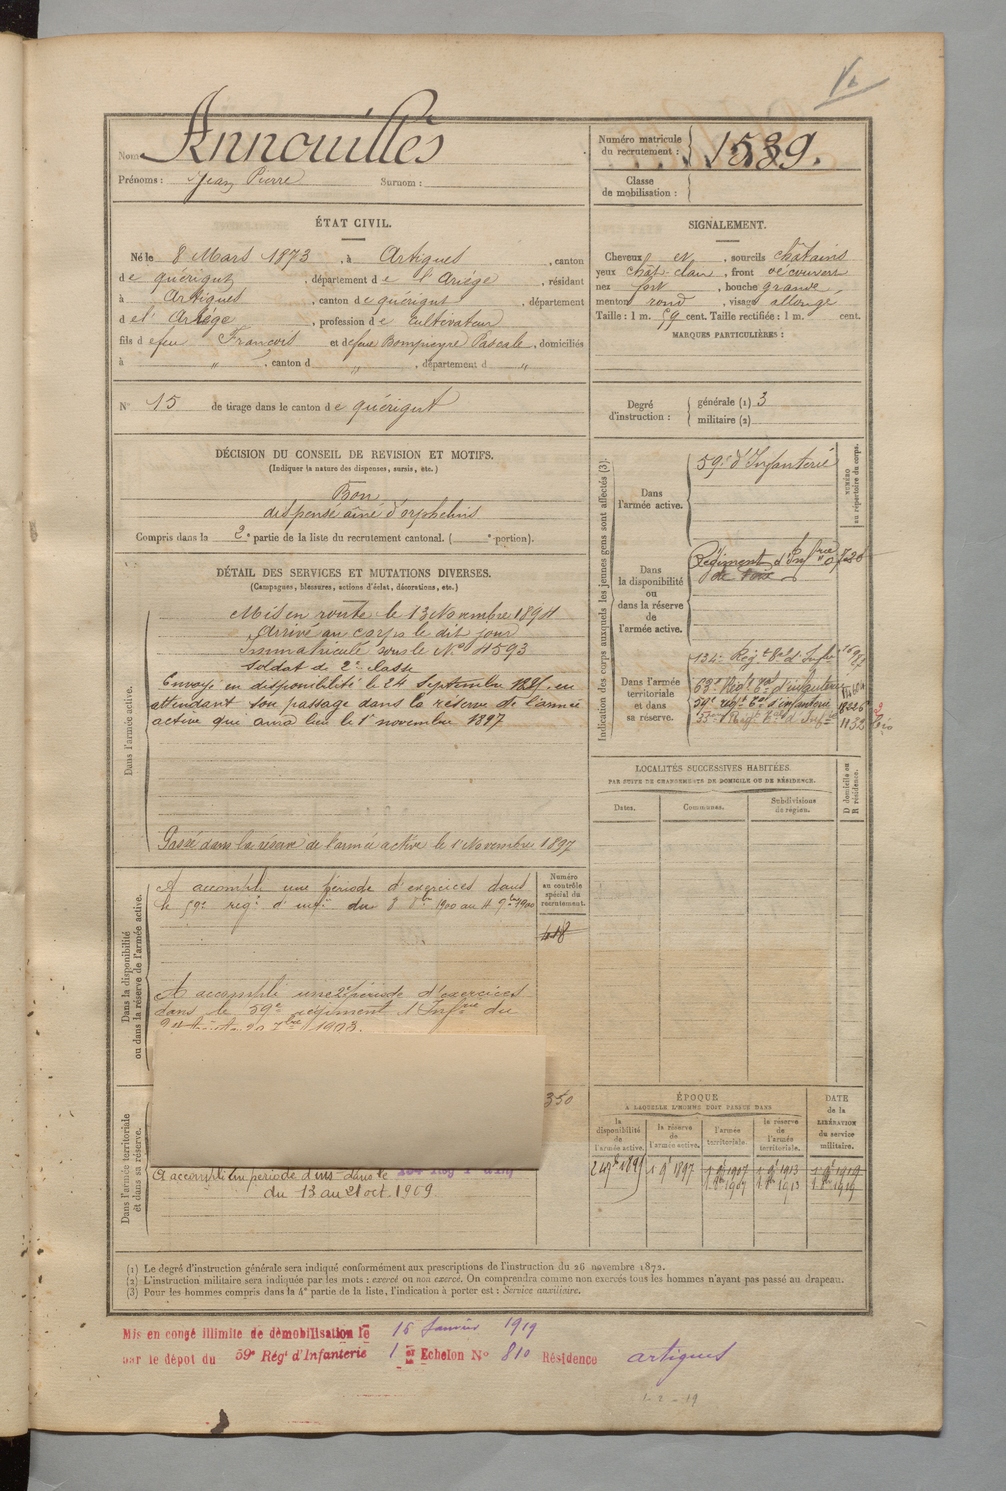 Nom Annouillès
Prénoms : Jean Pierre Surnom :
Numéro matricule du recrutement : 1539.
Classe de mobilisation :
ÉTAT CIVIL.
Né le 8 Mars 1873, à Artigues, canton
de quérigut, département de l'Ariége, résidant
à Artigues, canton de quérigut, département
de l'Ariége, profession de cultivateur
fils de feu François et de feue Bompieyre Pascale, domiciliés
à " , canton d " , département d "
N° 15 de tirage dans le canton de quérigut
SIGNALEMENT.
Cheveux et , sourcils châtains
yeux chât. clair, front découvert
nez fort, bouche grande
menton rond, visage allongé
Taille : 1 m. 59 cent. Taille rectifiée : 1 m. cent.
MARQUES PARTICULIÈRES :
Degré d'instruction :
générale (1) 3
militaire (2)
DÉCISION DU CONSEIL DE REVISION ET MOTIFS.
(Indiquer la nature des dispenses, sursis, etc.)
Bon
dispensé aîné d'orphelins
Compris dans la 2e partie de la liste du recrutement cantonal. ( e portion).
DÉTAIL DES SERVICES ET MUTATIONS DIVERSES.
(Campagnes, blessures, actions d'éclat, décorations, etc.)
Dans l'armée active.
Mis en route le 13 Novembre 1894
Arrivé au corps le dit jour
Immatriculé sous le N° 4593
Soldat de 2e classe
Envoyé en disponibilité le 24 Septembre 1895 en
attendant son passage dans la réserve de l'armée
active qui aura lieu le 1er novembre 1897
Passé dans la réserve de l'armée active le 1er Novembre 1897
Dans la disponibilité ou dans la réserve de l'armée active.
A accompli une période d'exercices dans
le 59e reg.t d'inf.ie du 8 au 4 9bre 1900
A accompli une 2e période d'exercices
dans le 59e régiment d'Infrie du
1903.
Numéro au contrôle spécial du recrutement.
418
350
Dans l'armée territoriale et dans sa réserve.
A accompli une période d'exs dans le
du 13 au 21 oct. 1909
Indication des corps auxquels les jeunes gens sont affectés (3).
NUMÉRO au répertoire du corps.
Dans l'armée active.
59e d'Infanterie
Dans la disponibilité ou dans la réserve de l'armée active.
Régiment d'Infrie
de Foix
Dans l'armée territoriale et dans sa réserve.
134e Régt Tal d'Infie
63e Régt Tal d'infanterie
59e régt Tal d'infanterie
Régt d'Infie 1132
LOCALITÉS SUCCESSIVES HABITÉES.
PAR SUITE DE CHANGEMENTS DE DOMICILE OU DE RÉSIDENCE.
Dates. Communes. Subdivisions de région. D domicile ou R résidence.
ÉPOQUE
A LAQUELLE L'HOMME DOIT PASSER DANS
la disponibilité de l'armée active. la réserve de l'armée active. l'armée territoriale. la réserve de l'armée territoriale.
DATE de la LIBÉRATION du service militaire.
24 7bre 1895 1 9bre 1897 1 9bre 1907 1 9bre 1913 1 9bre 1919
1 8bre 1907 1 8bre 1913 1 8bre 1919
(1) Le degré d'instruction générale sera indiqué conformément aux prescriptions de l'instruction du 26 novembre 1872.
(2) L'instruction militaire sera indiquée par les mots : exercé ou non exercé. On comprendra comme non exercés tous les hommes n'ayant pas passé au drapeau.
(3) Pour les hommes compris dans la 4e partie de la liste, l'indication à porter est : Service auxiliaire.
Mis en congé illimité de démobilisation le 16 Janvier 1919
par le dépôt du 59e Régt d'Infanterie 1er Echelon N° 810 Résidence artigues
1-2-19